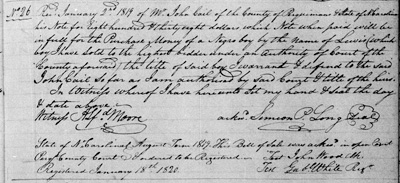 No. 26 Recd. January 2nd 1819 of Mr. John Cail of the County of Perquimans & State of N. Carolina
his Note for Eight hundred & thirty eight dollars which Note when paid will be
in full for the Purchase Money of a Negro boy by the Name of Lewis (which
boy I have Sold to the highest bidder under an authority of Court of the
County aforesd.) the title of Said boy I warrant & defend to the said
John Cail So far as I am authorized by Said Court & title of the heirs.
In Witness whereof I have hereunto Set my hand & Seal the day
& date above
Witness Moore ackd. Simeon P. Long Seal
State of N. Carolina August Term 1819 This Bill of Sale was ackd. in open Court
Perqs. County Court & ordered to be Registered. Test John Wood Clk.
Registered January 18th 1820. Test Gab. White Regr.